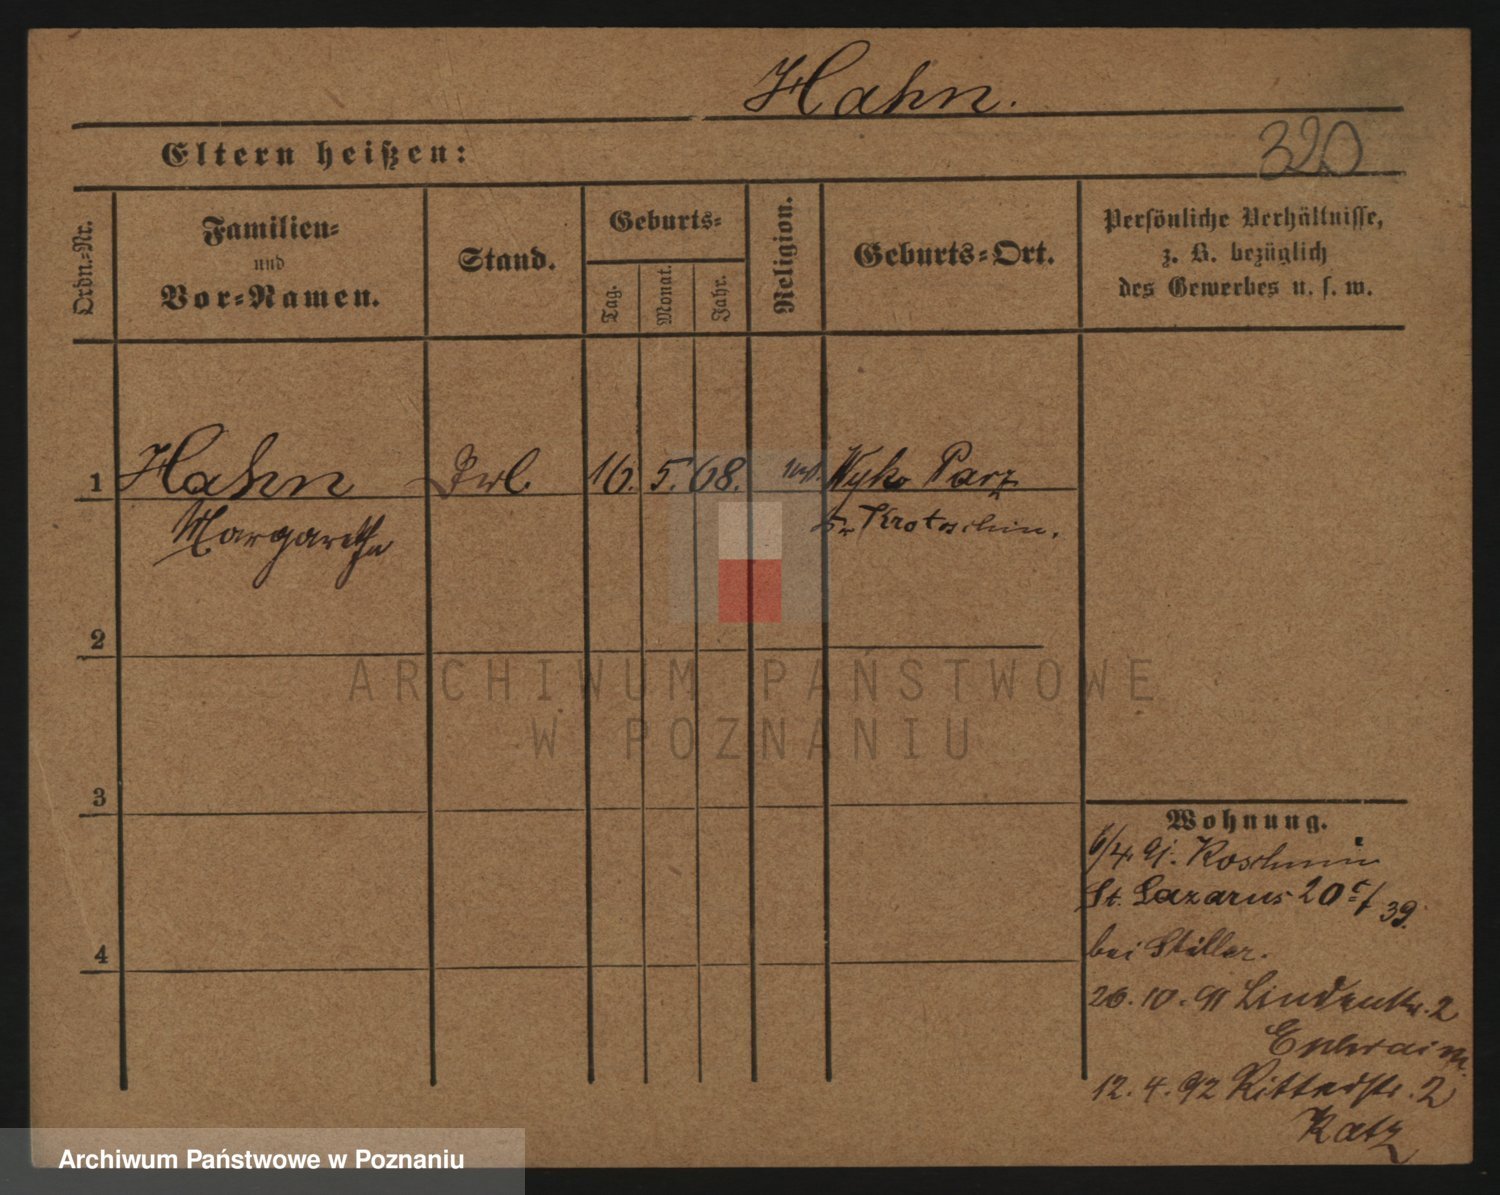 Hahn.
Eltern heißen:
320
Ordn.-Nr.
Familien-
und
Vor-Namen.
Stand.
Geburts-
Tag.
Monat.
Jahr.
Religion.
Geburts-Ort.
Persönliche Verhältnisse,
z. B. bezüglich
des Gewerbes u. s. w.
1 Hahn 16. 5. 68. Wyki Parz
Margarethe Kr Krotoschin.
2
3
4
Wohnung.
6/4. 91. Koschmin
St. Lazarus 20 c/ 39.
bei Stiller.
26.10.91 Lindenstr. 2
Ephraim.
12.4.92 Ritterstr. 2
Katz
ARCHIWUM PAŃSTWOWE
W POZNANIU
Archiwum Państwowe w Poznaniu